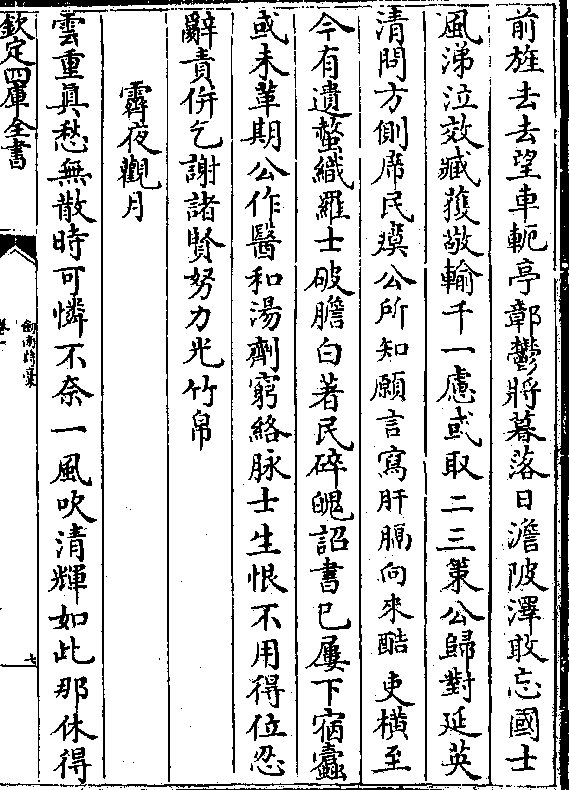 前旌去去望車軛亭鄣鬱將暮落日澹陂澤敢忘國士
風涕泣效臧獲敬輸千一慮或取二三策公歸對延英
清問方側席民瘼公所知願言寫肝膈向來酷吏橫至
今有遺螫織羅士破膽白著民碎魄詔書已屢下宿蠹
或未革期公作醫和湯劑窮絡脉士生恨不用得位忍
辭責併乞謝諸賢努力光竹帛
霽夜觀月
雲重真愁無散時可憐不奈一風吹清輝如此那休得
欽定四庫全書
劍南詩稾
卷一
七